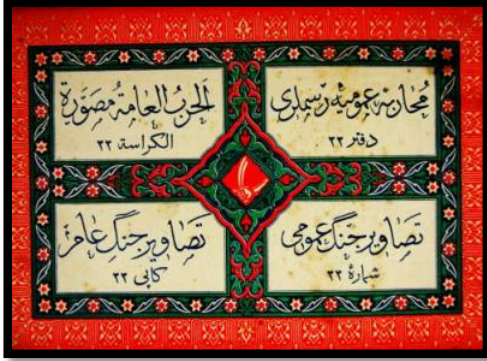 محاربه عمومیه رسملری
دفتر ٢٢
الحرب العامة مصورة
الكراسة ٢٢
تصاویر جنگ عمومی
شمارهٔ ٢٢
تصاویر جنگ عام
کاپی ٢٢